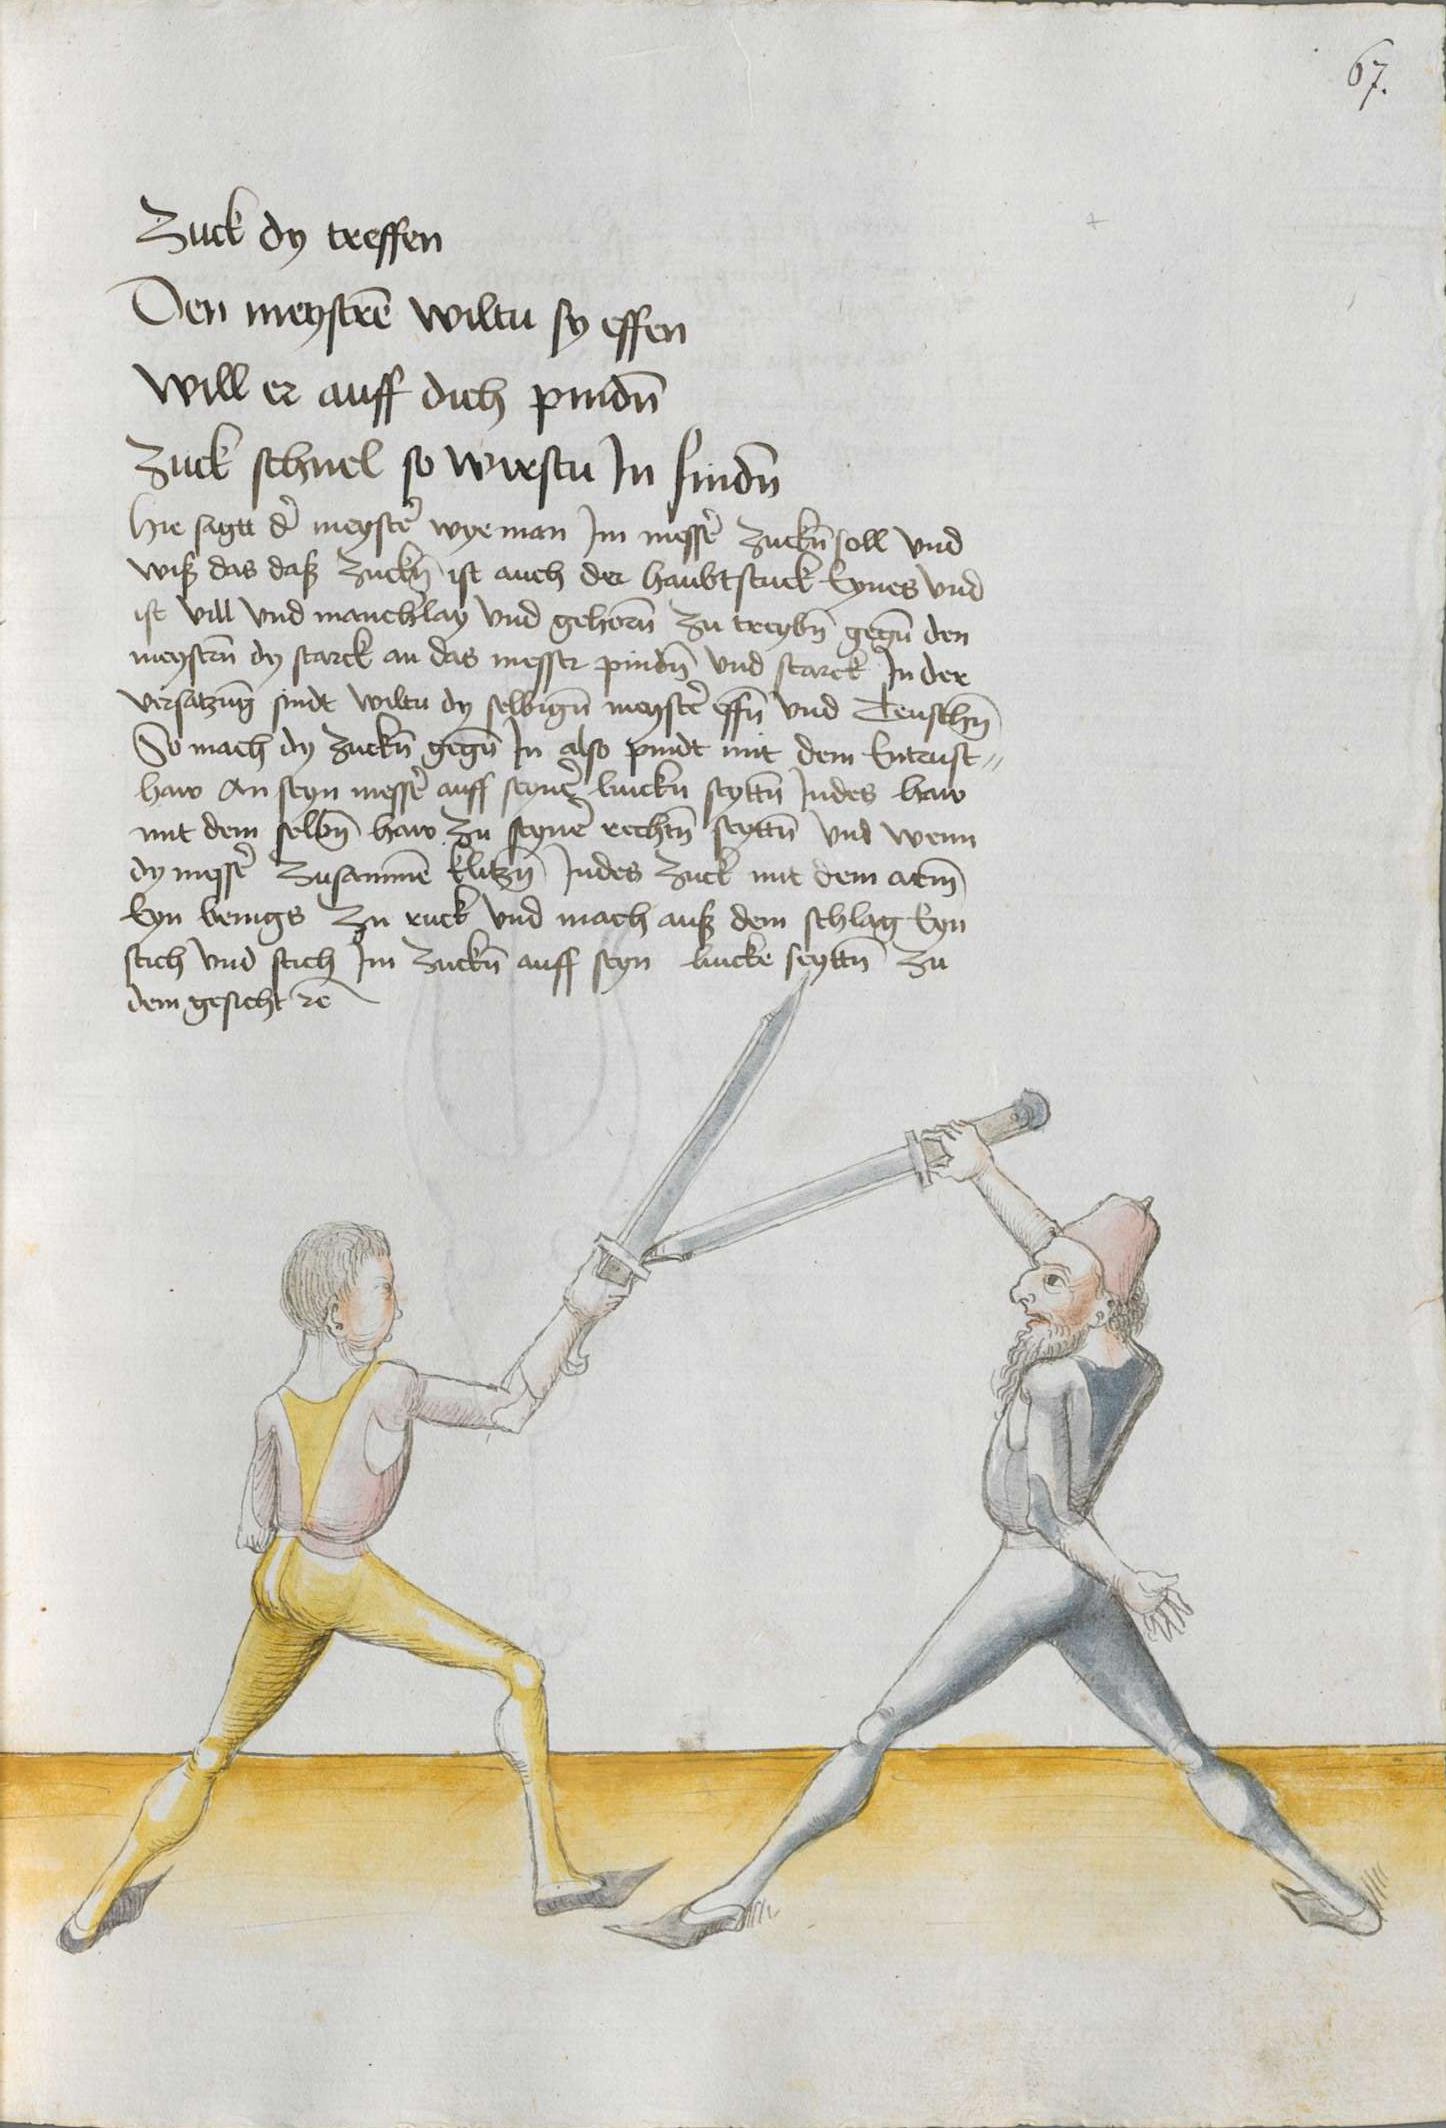 67.
Zuck dy treffen
Den meystrē wiltu sy effen
Will er auff dich pindn̄
Zuck schnel so wirstu In findn̄
Hie sagtt d' meyst' wye man Im mess' Zuckn̄ soll vnd
wiß das daß Zuckn̄ ist auch der haubtstuck Eynes vnd
ist vill vnd manch'lay vnd gehorn̄ Zu treybn̄ gegn̄ den
meystrn̄ dy starck an das messer pindn̄ vnd starck In der
versatzung sindt wiltu dy selbign̄ meyst' effn̄ vnd Teuschn̄
So mach dy Zuckn̄ gegn̄ In also pindt mit dem Entrust〃
haw An seyn mess' auff seyn' linckn̄ seyttn̄ Indes haw
mit dem selbn̄ haw Zu seyn' rechtn̄ seyttn̄ vnd wenn
dy mess' Zusammē klitzn̄ Indes Zuck mit dem arm̄
Eyn wenigs Zu ruck vnd mach auß dem schlag Eyn
stich vnd stich Im Zuckn̄ auff seyn lincke seyttn̄ Zu
dem gesicht rē